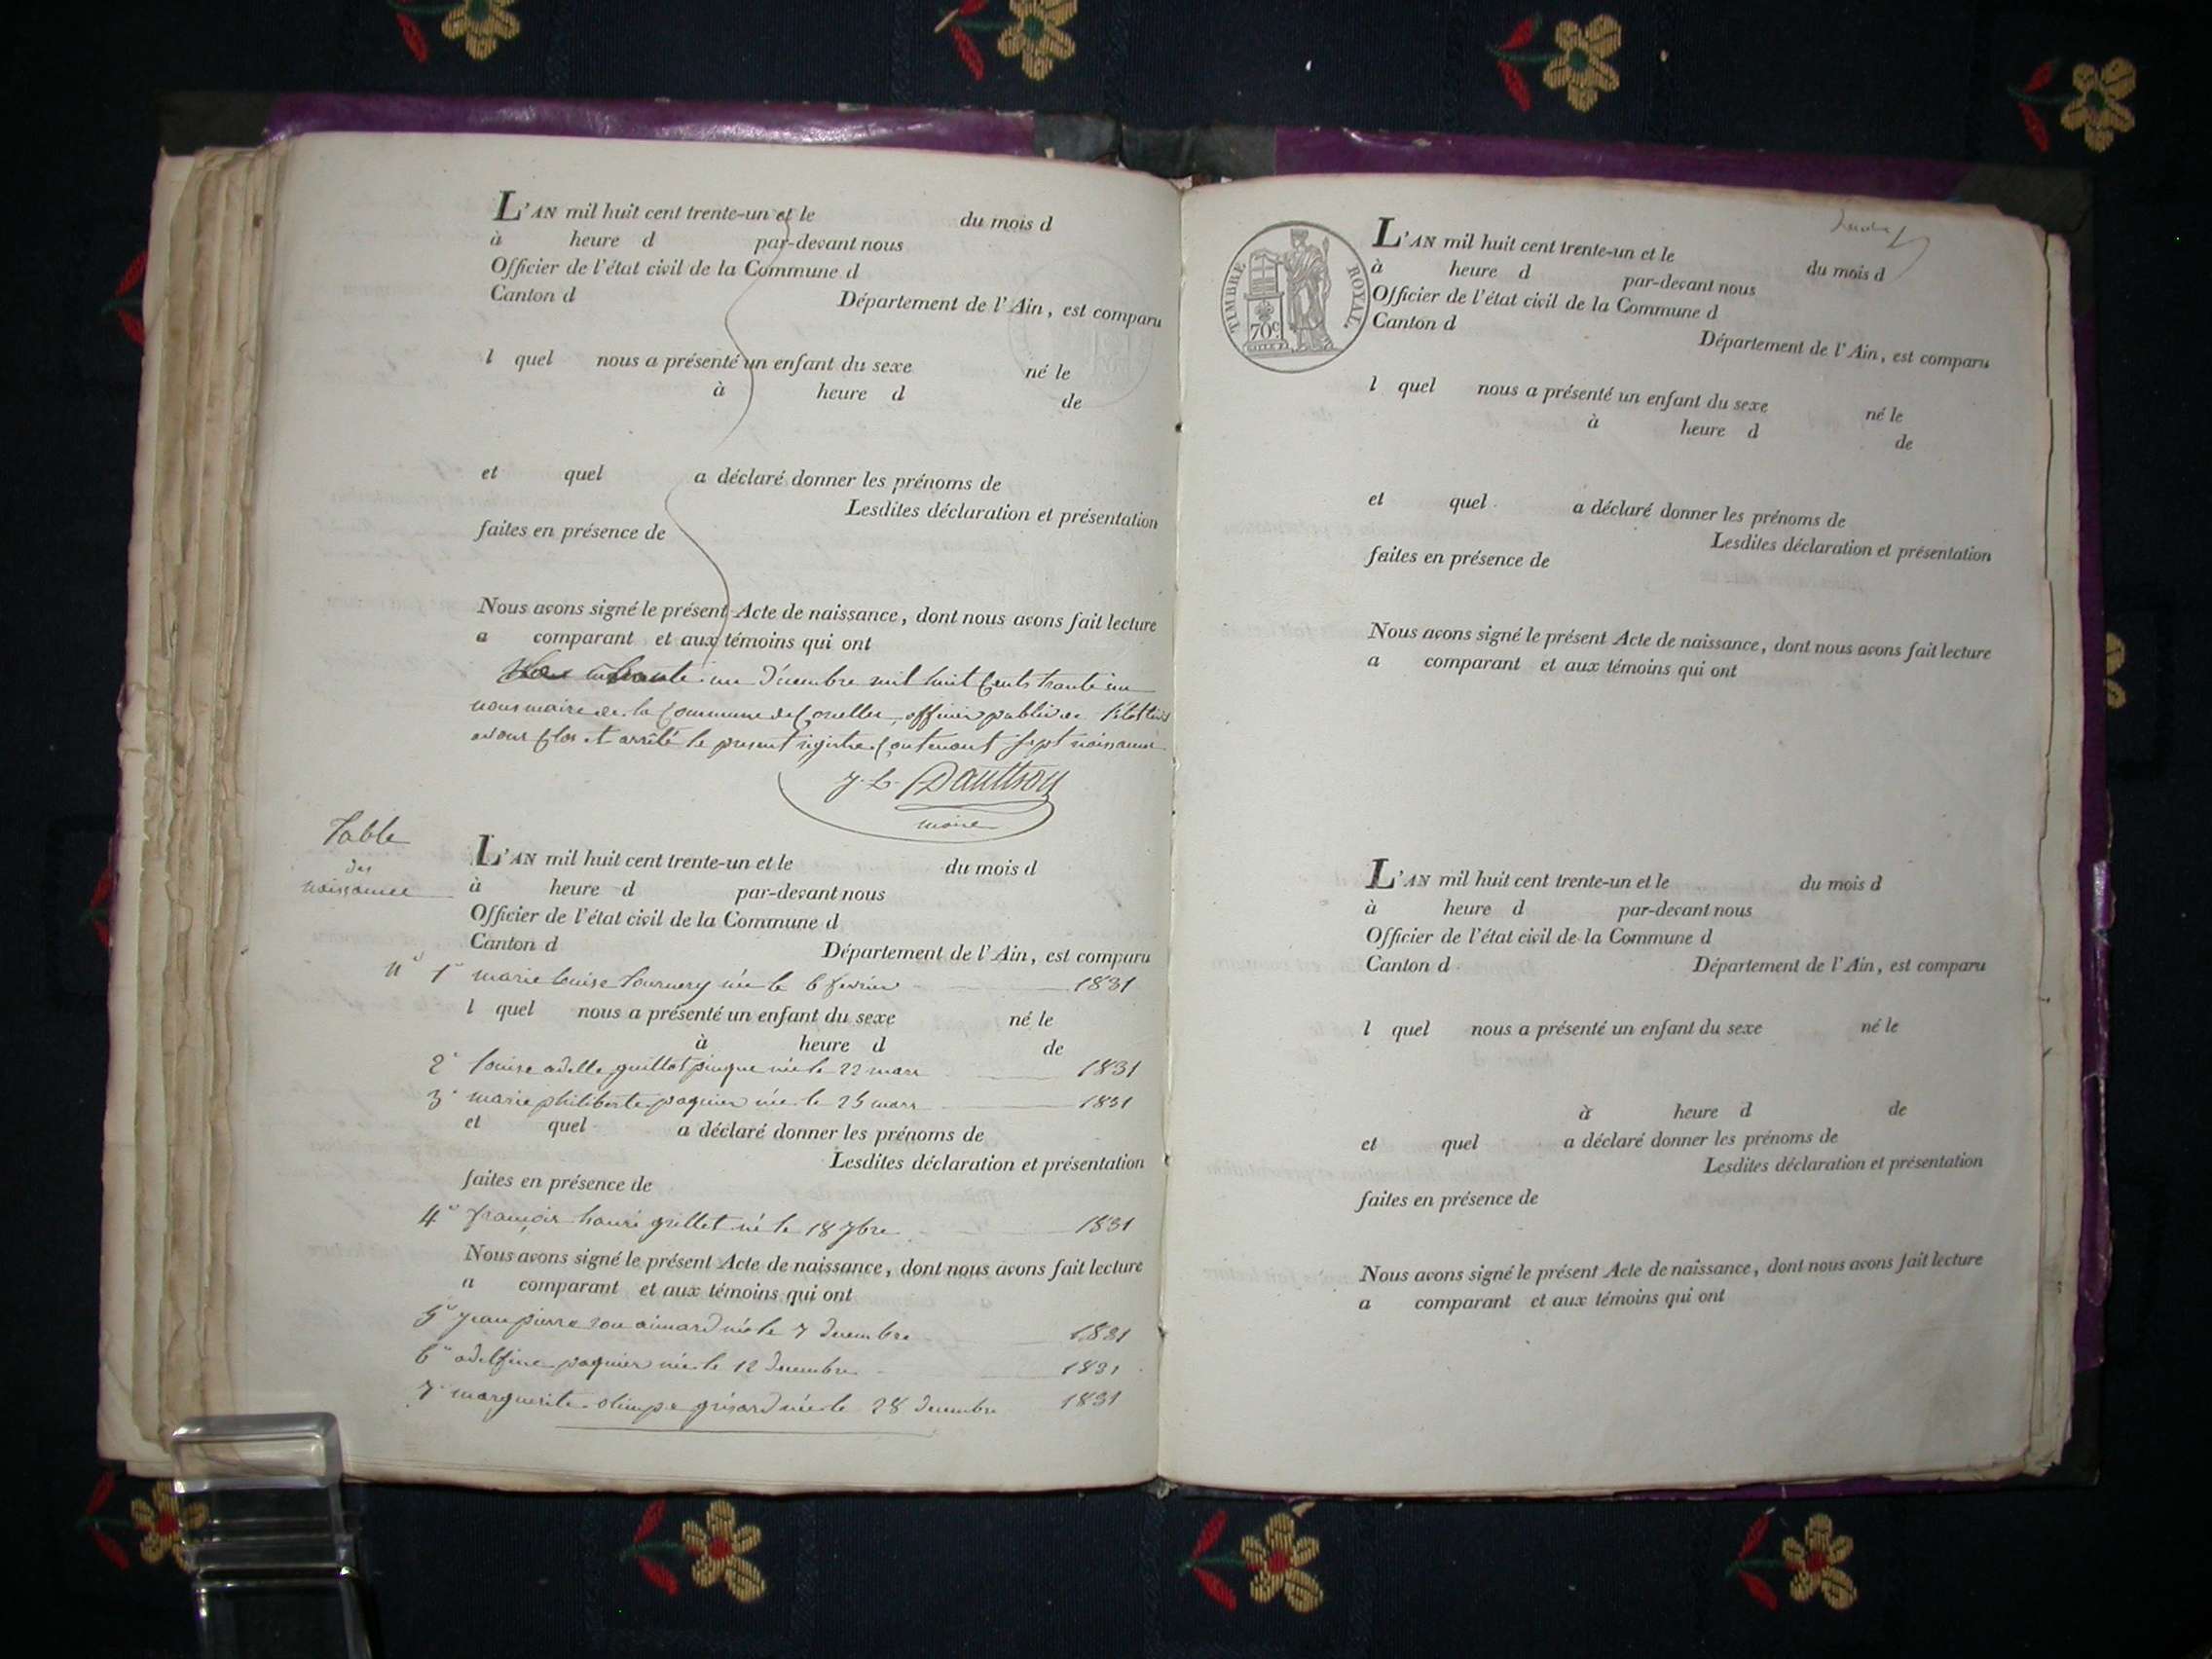 L'AN mil huit cent trente-un et le du mois d
à heure d par-devant nous
Officier de l'état civil de la Commune d
Canton d Département de l'Ain, est comparu
l quel nous a présenté un enfant du sexe né le
à heure d de
et quel a déclaré donner les prénoms de
Lesdites déclaration et présentation
faites en présence de
Nous avons signé le présent Acte de naissance, dont nous avons fait lecture
a comparant et aux témoins qui ont
trente un décembre mil huit cents trante un
nous maire de la Commune de officier public de
avons clos et arrêté le present registre contenant sept naissances
maire
Table
des
naissances
L'AN mil huit cent trente-un et le du mois d
à heure d par-devant nous
Officier de l'état civil de la Commune d
Canton d Département de l'Ain, est comparu
n° 1° marie louise née le 6 fevrier 1831
l quel nous a présenté un enfant du sexe né le
à heure d de
2° louise adelle née le 22 mars 1831
3° marie philiberte paquier née le 25 mars 1831
et quel a déclaré donner les prénoms de
Lesdites déclaration et présentation
faites en présence de
4° françois grillet né le 18 7bre 1831
Nous avons signé le présent Acte de naissance, dont nous avons fait lecture
a comparant et aux témoins qui ont
5° jean pierre né le 7 decembre 1831
6° adelfine paquier née le 12 decembre 1831
7° marguerite olimpe née le 28 decembre 1831
TIMBRE ROYAL
70c
L'AN mil huit cent trente-un et le du mois d
à heure d par-devant nous
Officier de l'état civil de la Commune d
Canton d Département de l'Ain, est comparu
l quel nous a présenté un enfant du sexe né le
à heure d de
et quel a déclaré donner les prénoms de
Lesdites déclaration et présentation
faites en présence de
Nous avons signé le présent Acte de naissance, dont nous avons fait lecture
a comparant et aux témoins qui ont
L'AN mil huit cent trente-un et le du mois d
à heure d par-devant nous
Officier de l'état civil de la Commune d
Canton d Département de l'Ain, est comparu
l quel nous a présenté un enfant du sexe né le
à heure d de
et quel a déclaré donner les prénoms de
Lesdites déclaration et présentation
faites en présence de
Nous avons signé le présent Acte de naissance, dont nous avons fait lecture
a comparant et aux témoins qui ont